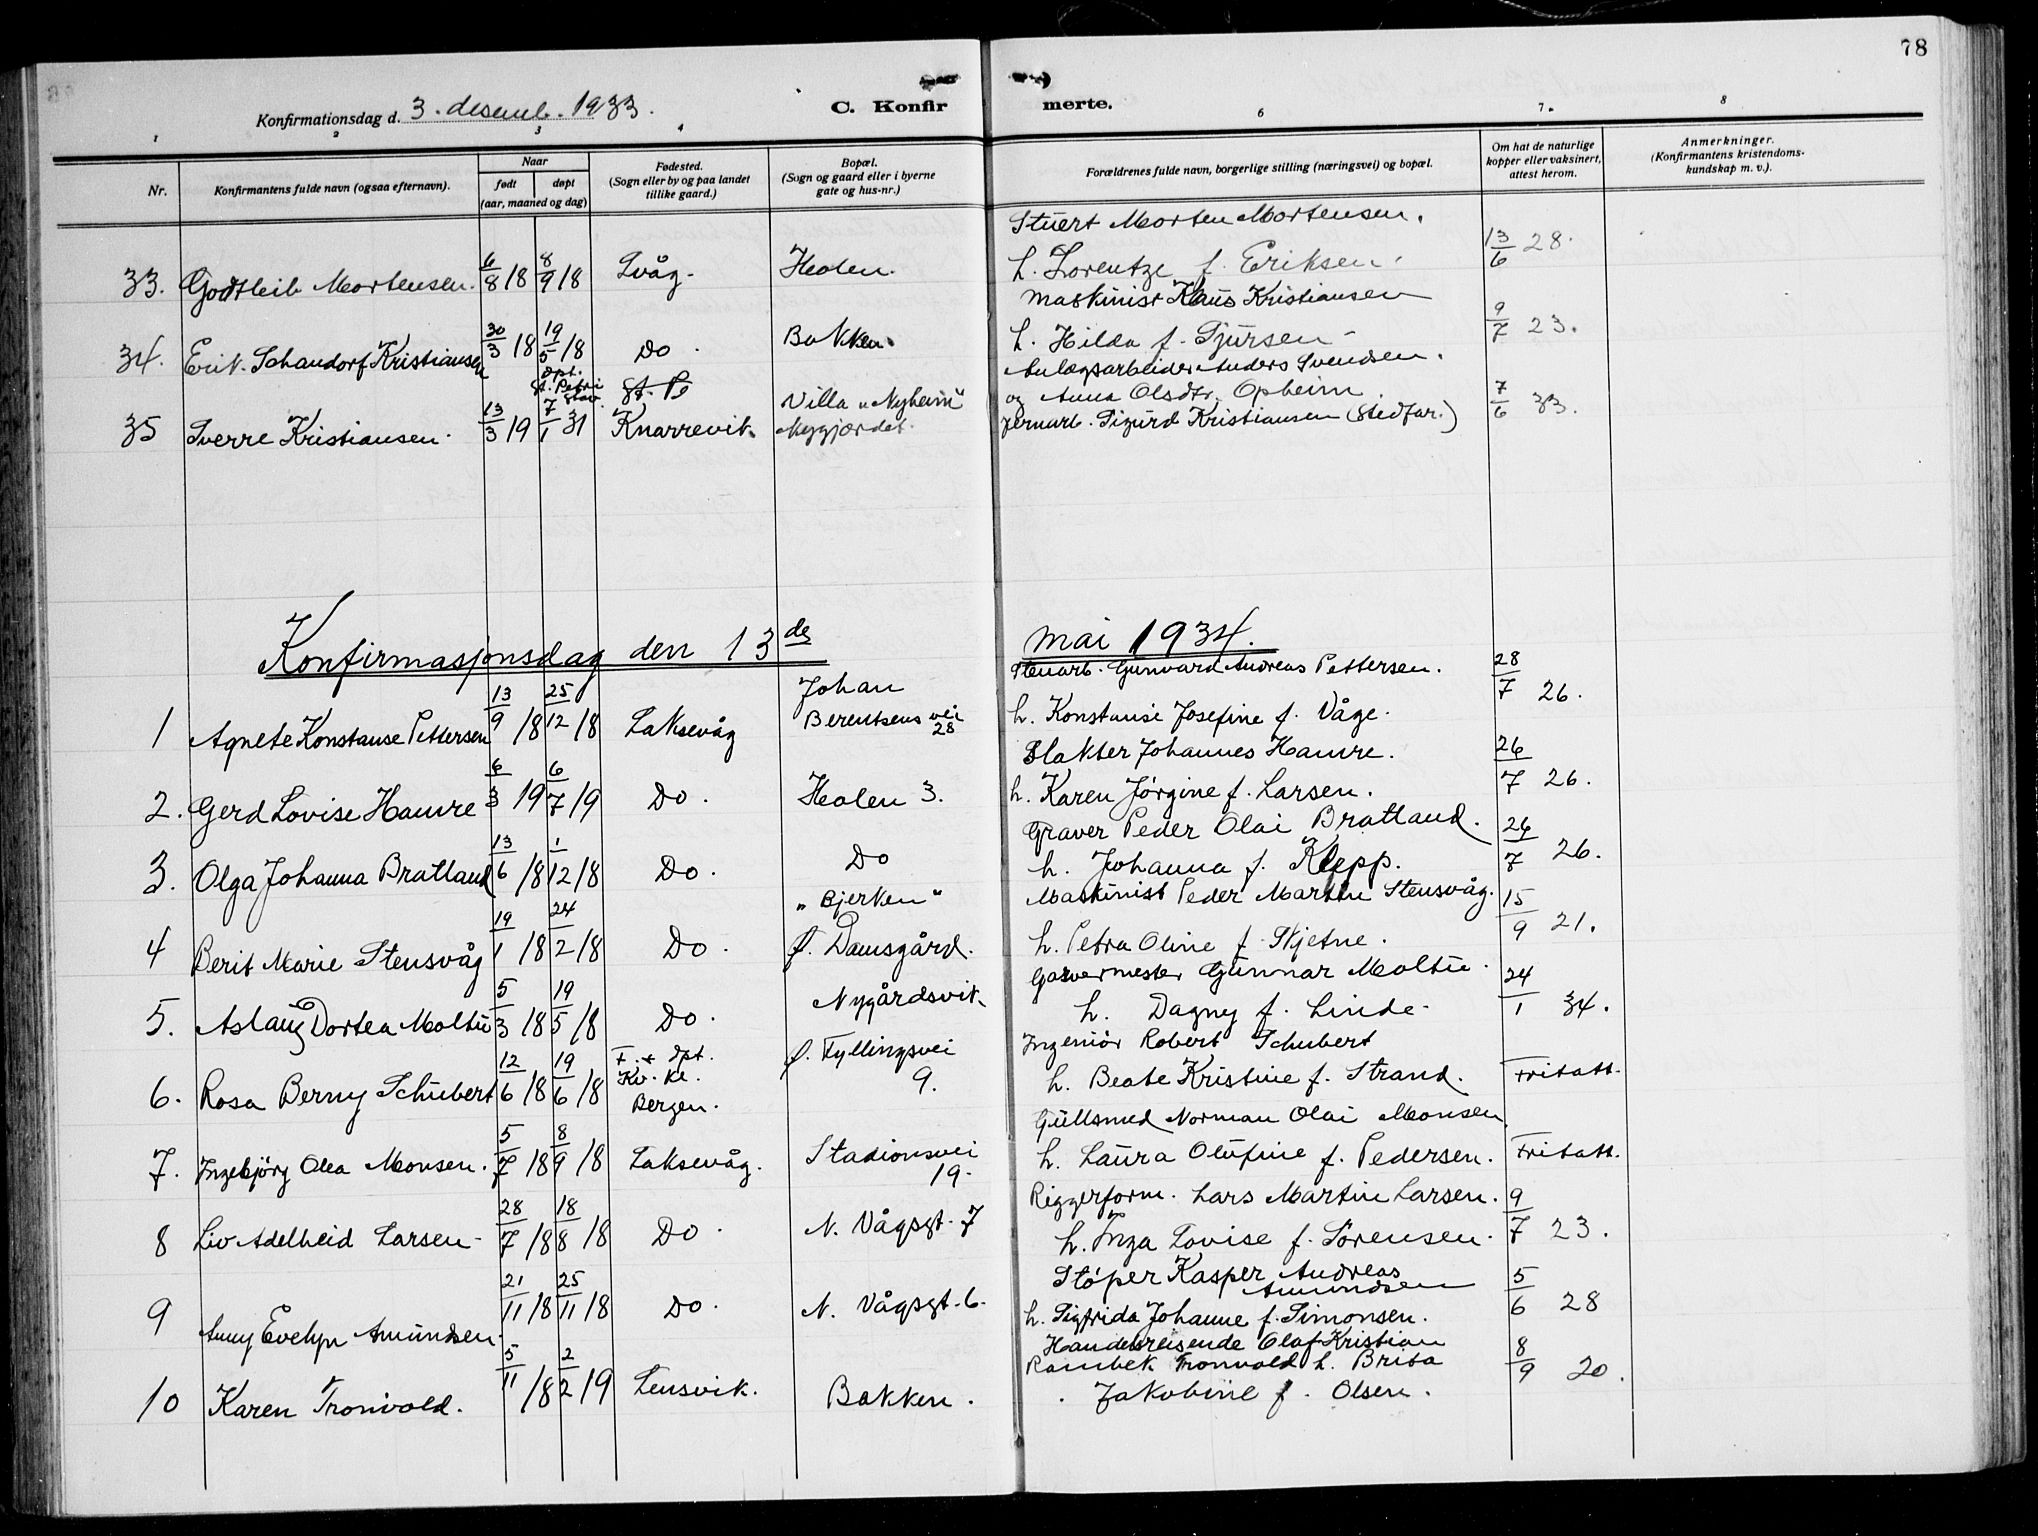 78
Konfirmationsdag d. 3. desemb. 1933.
C. Konfirmerte.
1 2 3 4 6 7. 8
Nr.
Konfirmantens fulde navn (ogsaa efternavn).
Naar
født døpt
(aar, maaned og dag)
Fødested.
(Sogn eller by og paa landet
tillike gaard.)
Bopæl.
(Sogn og gaard eller i byerne
gate og hus-nr.)
Forældrenes fulde navn, borgerlige stilling (næringsvei) og bopæl.
Om hat de naturlige
kopper eller vaksinert,
attest herom.
Anmerkninger.
(Konfirmantens kristendoms-
kundskap m. v.).
Stuert Morten Mortensen.
33. Godtleib Mortensen. 6/8 18 8/9 18 Lvåg. Holen. h. Lorentze f. Eriksen. 13/6 28.
Maskinist Klaus Kristiansen
34. Erik Schandorf Kristiansen 30/3 18 19/5 18 Do. Bakken. h. Hilda f. Tjursen 9/7 23.
Anlægsarbeider Anders Svendsen.
dpt. St. Petri Stav. St. Pe Villa "Nyheim" og Anna Olsdtr. Opheim
35 Sverre Kristiansen. 13/3 19 7/1 31 Knarrevik Nygjordet. Jernarb. Sigurd Kristiansen (Stedfar.) 7/6 33.
Konfirmasjonsdag den 13de mai 1934.
Stenarb. Gunvard Andreas Pettersen.
1 Agnete Konstanse Pettersen 13/9 18 25/12 18 Laksevåg Johan Berentsens vei 28 h. Konstansi Josefine f. Våge. 28/7 26.
Slakter Johannes Hamre.
2. Gerd Lovise Hamre 6/3 19 6/7 19 Do. Holen 3. h. Karen Jörgine f. Larsen. 26/7 26.
Graver Peder Olai Bratland.
3. Olga Johanna Bratland 13/6 18 1/12 18 Do. Do h. Johanna f. Klepp. 26/7 26.
"Bjerken" Maskinist Peder Martin Stensvåg.
4 Berit Marie Stensvåg 19/1 18 24/2 18 Do. f. Damsgård. h. Petra Oline f. Skjetne. 15/9 21.
Garvermester Gunnar Moltu.
5. Aslaug Dortea Moltu 5/3 18 19/5 18 Do. Nygårdsvik h. Dagny f. Linde. 24/1 34.
Ingeniör Robert Schubert
6. Rosa Berny Schubert 12/6 18 19/6 18 F. + dpt. Kv. Kl. Bergen. f. Fyllingsvei 9. h. Beate Kristine f. Strand. Fritatt.
Gullsmed Norman Olai Monsen
7. Ingebjörg Olea Monsen. 5/7 18 8/9 18 Laksevåg. Stadionsvei 19. h. Laura Olufine f. Pedersen. Fritatt.
Riggerform. Lars Martin Larsen.
8 Liv Adelheid Larsen 28/7 18 18/8 18 Do. N. Vågsgt. 7 h. Inga Lovise f. Sörensen. 9/7 23.
Stöper Kasper Andreas Amundsen
9 Anny Evelyn Amundsen. 21/11 18 25/11 18 Do. N. Vågsgt. 6. h. Sigfrida Johanne f. Simonsen. 5/6 28
Handelsreisende Olaf Kristian
Rambek Tronvold h. Brita
10 Karen Tronvold. 5/11 18 2/2 19 Lensvik. Bakken. Jakobine f. Olsen. 8/9 20.